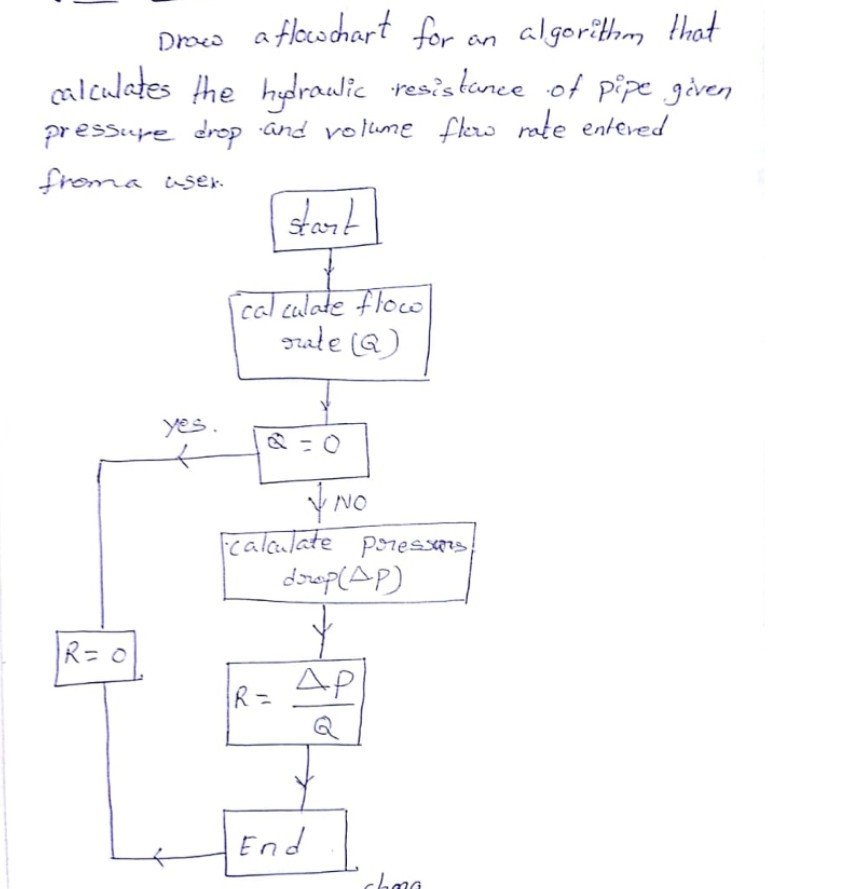 Draw a flowchart for an algorithm that
calculates the hydraulic resistance of pipe given
pressure drop and volume flow rate entered
from a user.
start
calculate flow
rate (Q)
yes.
Q = 0
NO
calculate pressure
drop(ΔP)
R = 0
R = ΔP
Q
End